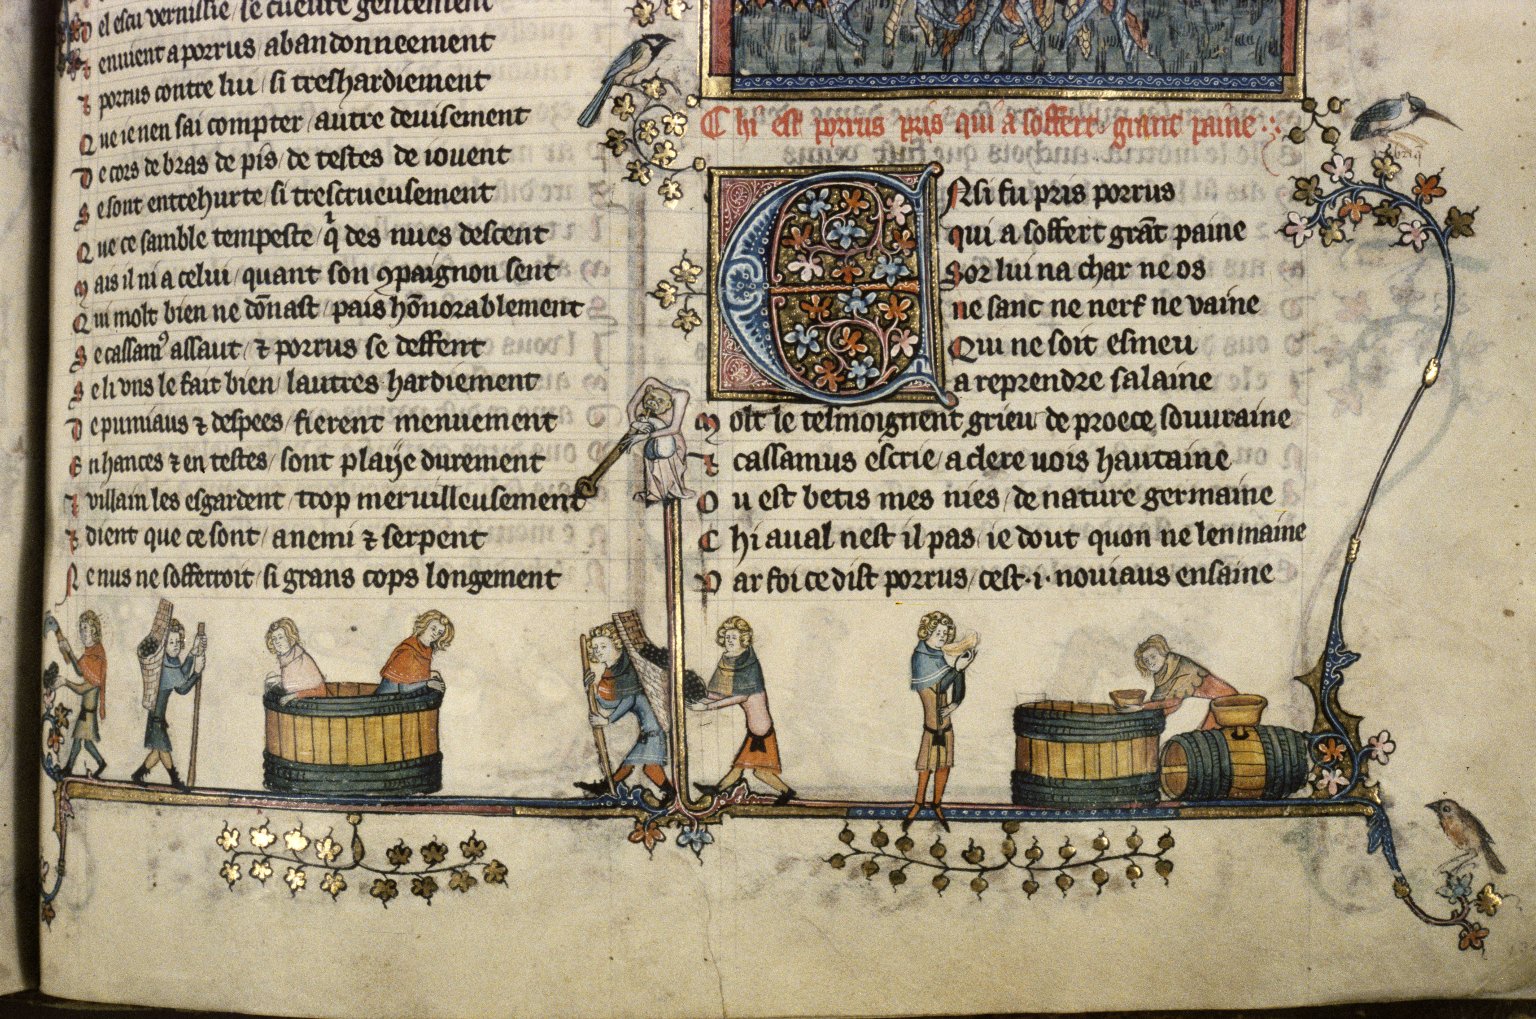 el escu vermillie / se cueure gentement
enuient a porrus abandonneement
⁊ porrus contre lui / si treshardiement
Que ie nen sai compter / autre deuisement
De cors de bras de pis / de testes de iouent
Se sont entrehurte / si trescrueusement
Que ce samble tempeste / q̄ des nues descent
Mais il ni a celui / quant son ꝯpaignon sent
Qui molt bien ne dōnast / pais hōnorablement
Se cassam⁹ assaut / ⁊ porrus se deffent
Se li vns le fait bien / lautres hardiement
De pumiaus ⁊ despees / fierent menuement
En hances ⁊ en testes / sont plaije durement
⁊ villain les esgardent / trop meruilleusement
⁊ dient que ce sont / anemi ⁊ serpent
Ne nus ne sofferroit / si grans cops longement
Chi est porrus pris qui a soffert grant paine
ENsi fu pris porrus
qui a soffert grāt paine
Sor lui na char ne os
ne sanc ne nerf ne vaine
Qui ne soit esmeu
a reprendre salaine
Molt le tesmoignent grieu de proece souuraine
⁊ cassamus escrie / a clere uois hautaine
Ou est betis mes nies / de nature germaine
Chi aual nest il pas / ie dout quon ne len maine
Par foi ce dist porrus / cest ·i· nouiaus ensaine